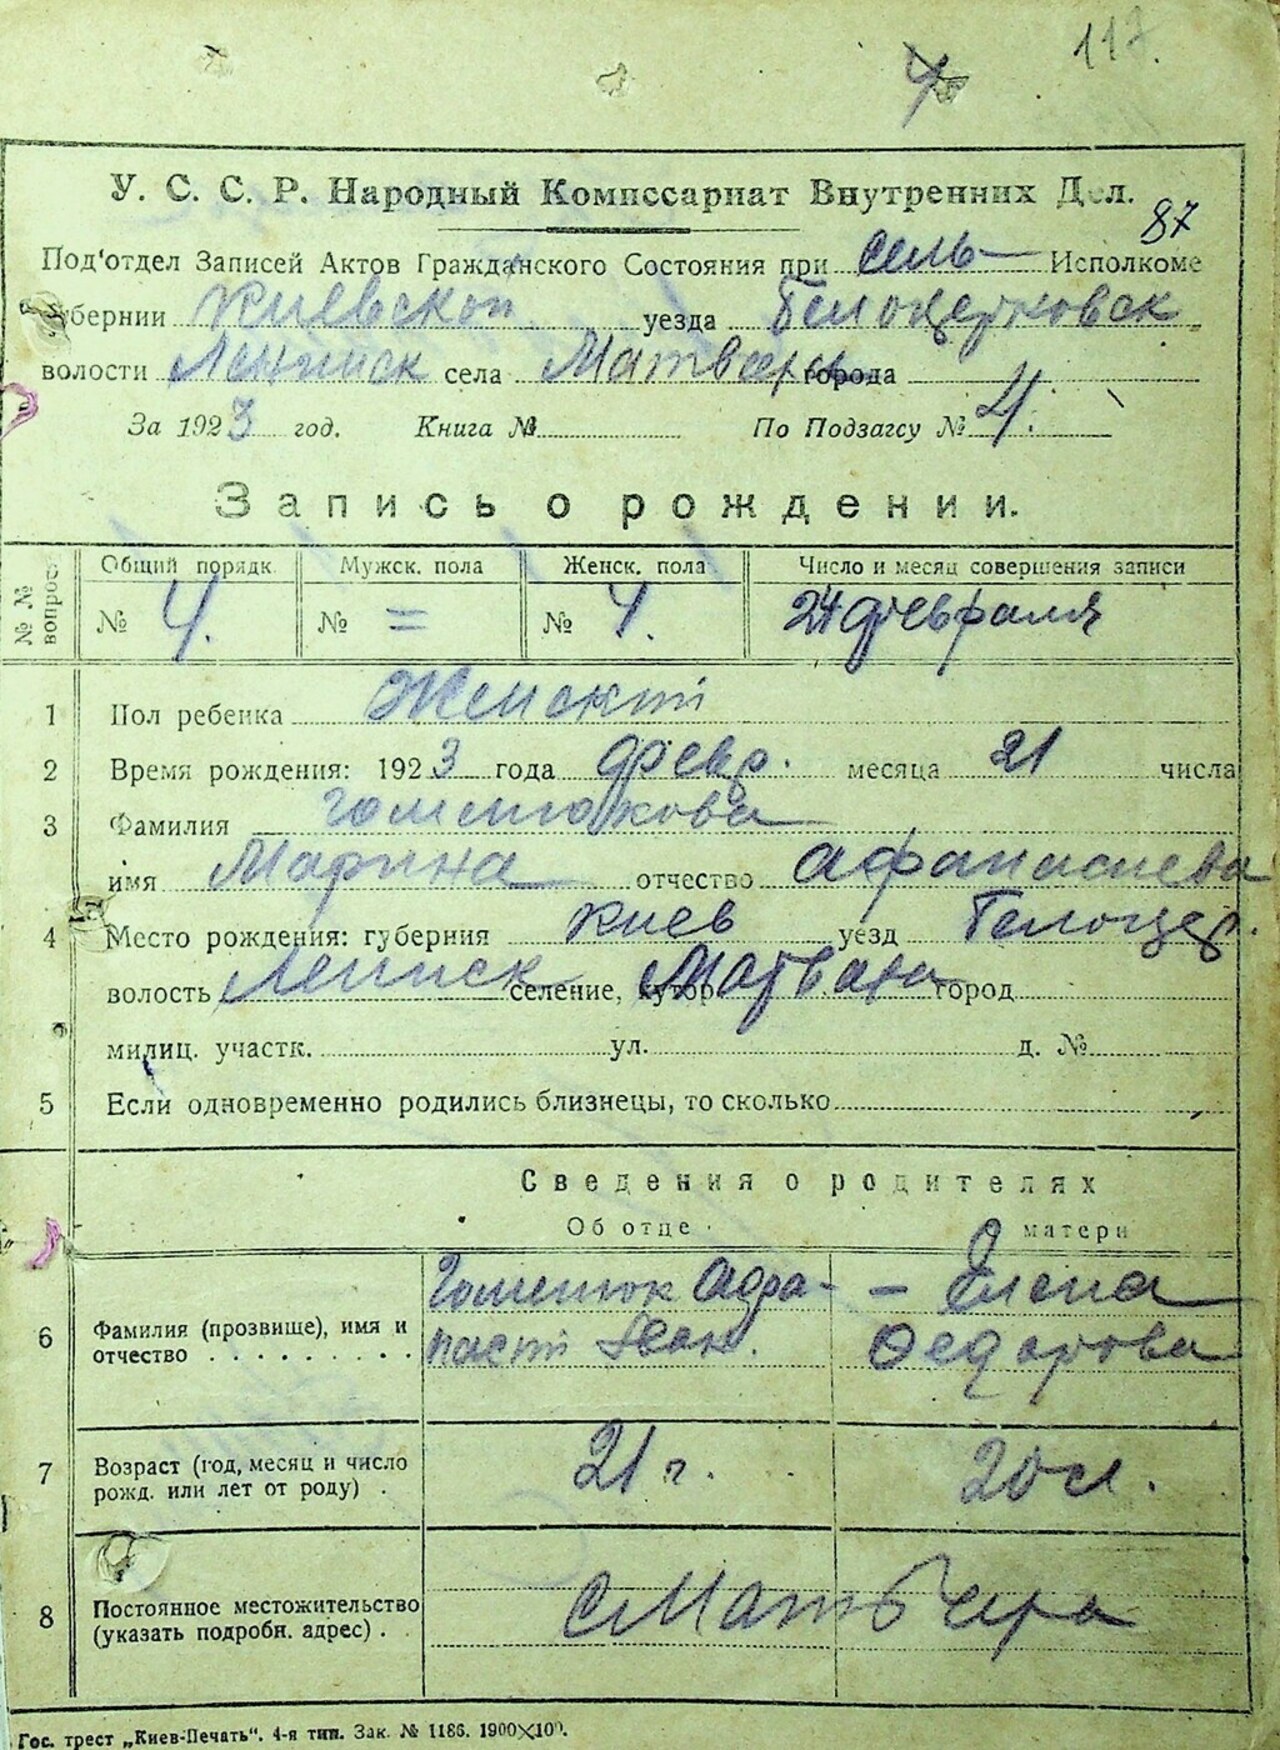 117.
4
У. С. С. Р. Народный Комиссариат Внутренних Дел.
87
Под‘отдел Записей Актов Гражданского Состояния при сель Исполкоме
губернии Киевской уезда Белоцерковск
волости Ленинск села города
За 1923 год. Книга № По Подзагсу № 4.
Запись о рождении.
№ № вопрос. Общий порядк. Мужск. пола Женск. пола Число и месяц совершения записи
№ 4. № = № 4. 24 февраля
1 Пол ребенка Женский
2 Время рождения: 1923 года февр. месяца 21 числа
3 Фамилия Гоменюкова
имя Марина отчество Афанасиева
4 Место рождения: губерния Киев уезд Белоцер.
волость Ленинск селение, хутор город
милиц. участк. ул. д. №
5 Если одновременно родились близнецы, то сколько
Сведения о родителях
Об отце О матери
6 Фамилия (прозвище), имя и отчество Гоменюк Афа- - Елена
насий Иван. Федорова
7 Возраст (год, месяц и число рожд. или лет от роду) . 21 г. 20 л.
8 Постоянное местожительство (указать подробн. адрес) .
Гос. трест „Киев-Печать“. 4-я тип. Зак. № 1186. 1900×100.